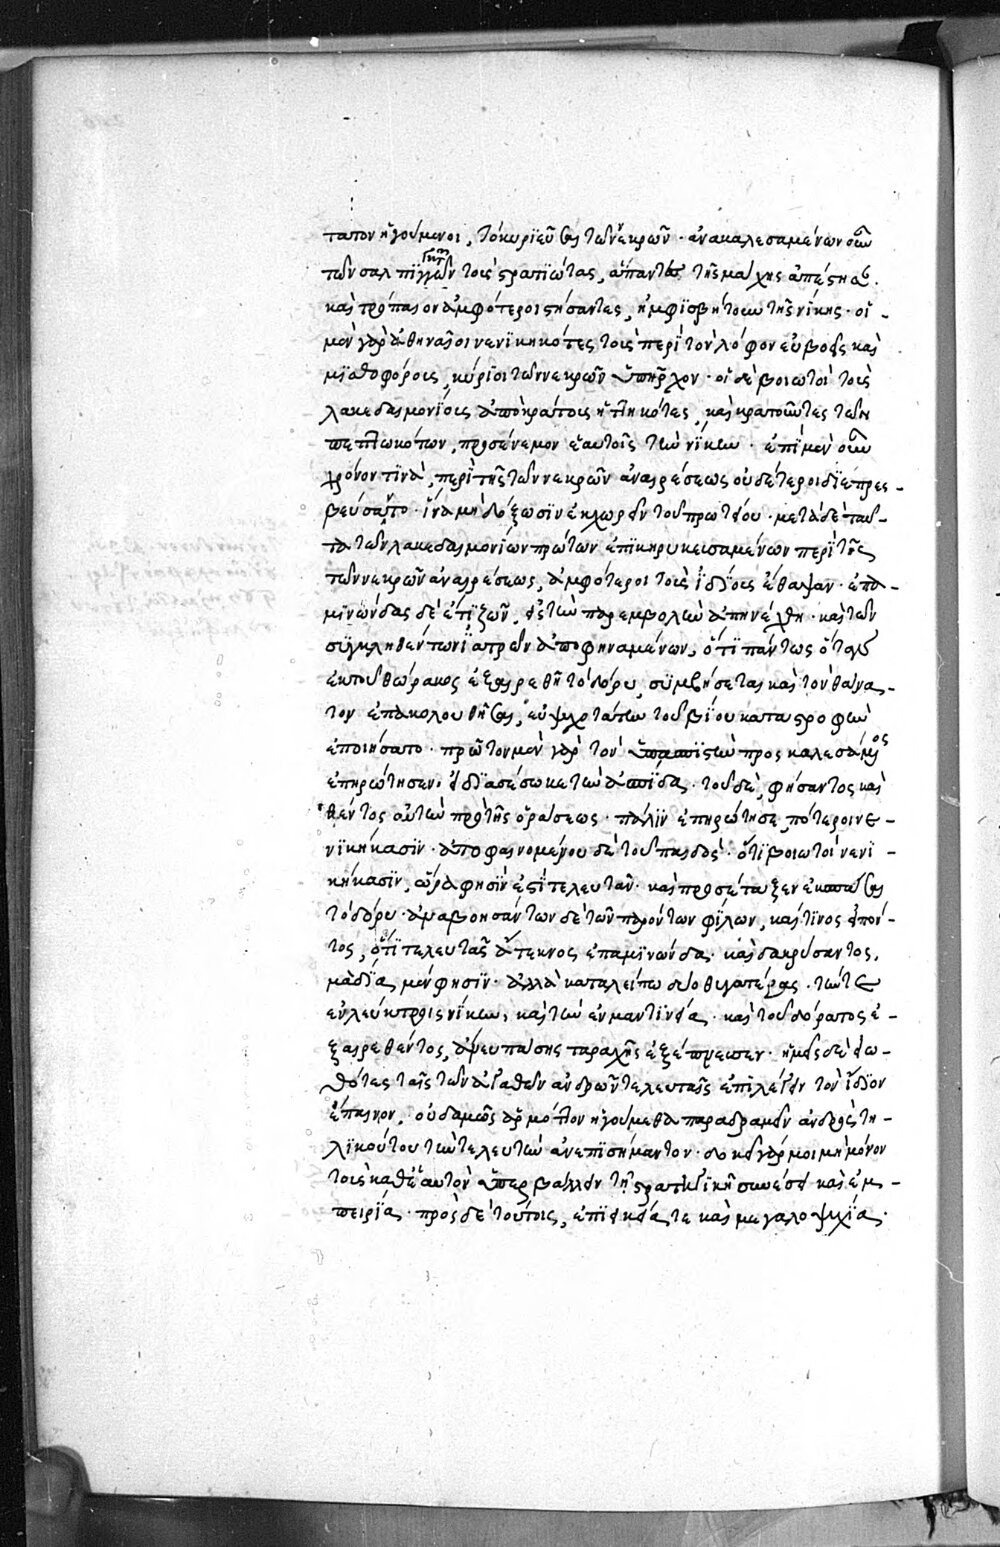 τατον ἡγούμενοι, τὸ κυριεῦσαι τῶν νεκρῶν· ἀνακαλεσαμένων οὖν
τῶν σαλπιγκτῶν τοὺς στρατιώτας, ἅπαντες τῆς μάχης ἀπέστησαν.
καὶ τρόπαιον ἀμφότεροι στήσαντες, ἠμφισβήτουν τῆς νίκης· οἱ -
μὲν γὰρ ἀθηναῖοι νενικηκότες τοὺς περὶ τὸν λόφον εὐβοεῖς καὶ
μισθοφόρους, κύριοι τῶν νεκρῶν ὑπῆρχον· οἱ δὲ βοιωτοὶ τοὺς
λακεδαιμονίους ἀπὸ κράτους ἡττηκότες, καὶ κρατοῦντες τῶν
πεπτωκότων, προσένεμον ἑαυτοῖς τὴν νίκην· ἐπὶ μὲν οὖν
χρόνον τινὰ, περὶ τῆς τῶν νεκρῶν ἀναιρέσεως οὐδέτεροι διεπρεσ -
βεύσαντο· ἵνα μὴ δόξωσιν ἐκχωρεῖν τοῦ πρωτείου· μετὰ δὲ ταῦ -
τα τῶν λακεδαιμονίων πρώτων ἐπικηρυκευσαμένων περὶ τῆς
τῶν νεκρῶν ἀναιρέσεως, ἀμφότεροι τοὺς ἰδίους ἔθαψαν· ἐπα -
μινώνδας δὲ ἔτι ζῶν, εἰς τὴν παρεμβολὴν ἀπηνέχθη· καὶ τῶν
συγκληθέντων ἰατρῶν ἀποφηναμένων, ὅτι πάντως ὅταν
ἐκ τοῦ θώρακος ἐξαιρεθῇ τὸ δόρυ, συμβήσεται καὶ τὸν θάνα -
τον ἐπακολουθῆσαι, εὐψυχοτάτην τοῦ βίου καταστροφὴν
ἐποιήσατο· πρῶτον μὲν γὰρ τὸν ὑπασπιστὴν προσκαλεσάμενος
ἐπηρώτησεν· εἰ διασέσωκε τὴν ἀσπίδα· τοῦ δὲ, φήσαντος καὶ
θέντος αὐτὴν πρὸ τῆς ὁράσεως· πάλιν ἐπηρώτησε, πότεροι νε -
νικήκασιν· ἀποφαινομένου δὲ τοῦ παιδὸς· ὅτι βοιωτοὶ νενι -
κήκασιν, ὥρα φησὶν ἐστὶ τελευτᾶν· καὶ προσέταξεν ἐκσπάσαι
τὸ δόρυ· ἀναβοησάντων δὲ τῶν παρόντων φίλων, καί τινος εἰπόν -
τος, ὅτι τελευτᾷς ἄτεκνος ἐπαμινώνδα· καὶ δακρύσαντος,
μὰ δία, μὲν φησὶν· ἀλλὰ καταλείπω δύο θυγατέρας· τήν τε
ἐν λεύκτροις νίκην, καὶ τὴν ἐν μαντινείᾳ· καὶ τοῦ δόρατος ἐ -
ξαιρεθέντος, ἄνευ πάσης ταραχῆς ἐξέπνευσεν· ἡμεῖς δὲ εἰω -
θότες ταῖς τῶν ἀγαθῶν ἀνδρῶν τελευταῖς ἐπιλέγειν τὸν ἴδιον
ἔπαινον, οὐδαμῶς ἁρμόττον ἡγούμεθα παραδραμεῖν ἀνδρὸς τη -
λικούτου τὴν τελευτὴν ἀνεπισήμαντον· δοκεῖ γάρ μοι μὴ μόνον
τοὺς καθ' ἑαυτὸν ὑπερβάλλειν τῇ στρατηγικῇ συνέσει καὶ ἐμ -
πειρίᾳ· πρὸς δὲ τούτοις, ἐπιεικείᾳ τε καὶ μεγαλοψυχίᾳ·